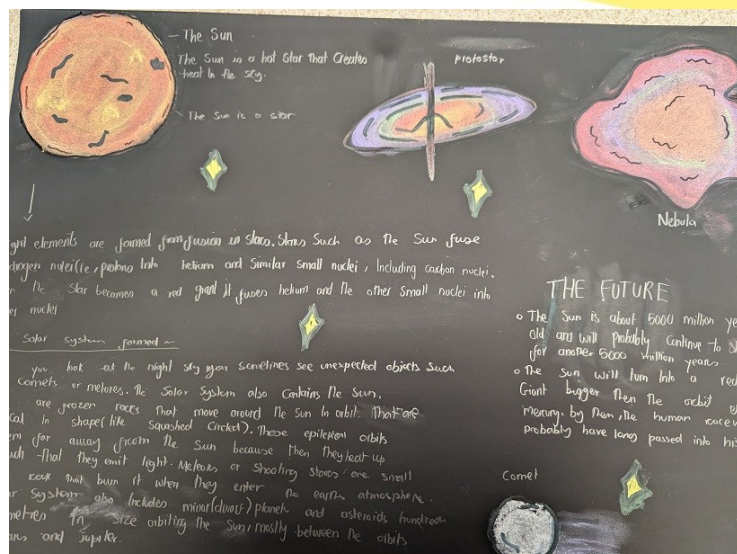 The Sun
The Sun is a hot Star That Creates
heat In the sky.
The Sun is a star
protostar
Nebula
ght elements are formed from fusion in stars. Stars Such as the Sun fuse
drogen nuclei (ie, protons Into helium and Similar small nuclei, Including carbon nuclei.
the star becomes a red giant it fuses helium and the other small nuclei into
er nuclei
Solar system formed
you look at the night sky you sometimes see unexpected objects such
comets or meteors. The Solar System also Contains the Sun.
are frozen rocks that move around the Sun In orbit that are
cal in shape (like Squashed Circles). These orbits
em far away from the Sun because then they heat up
uch that they emit light. Meteors or Shooting Stars are small
rock that burn it when they enter the earths atmosphere.
r System also Includes minor (dwarf) planet and asteroids hundred
metres in size orbiting the Sun, mostly between the orbits
ars and jupiter.
THE FUTURE
The Sun is about 5000 million ye
old and will probably continue to s
for another 5000 million years
The sun will turn Into a red
Giant bugger then the orbit
mercury. by then, the human race w
probably have long passed into his
Comet